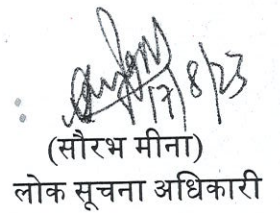 17/8/23
(सौरभ मीना)
लोक सूचना अधिकारी